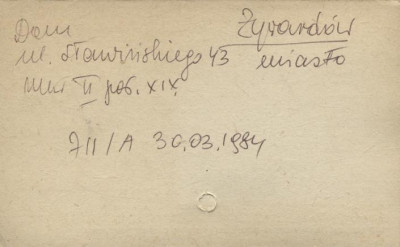 Dom Żyrardów
ul. Sławińskiego 43 miasto
mur. II poł. XIX.
711/A 30.03.1984